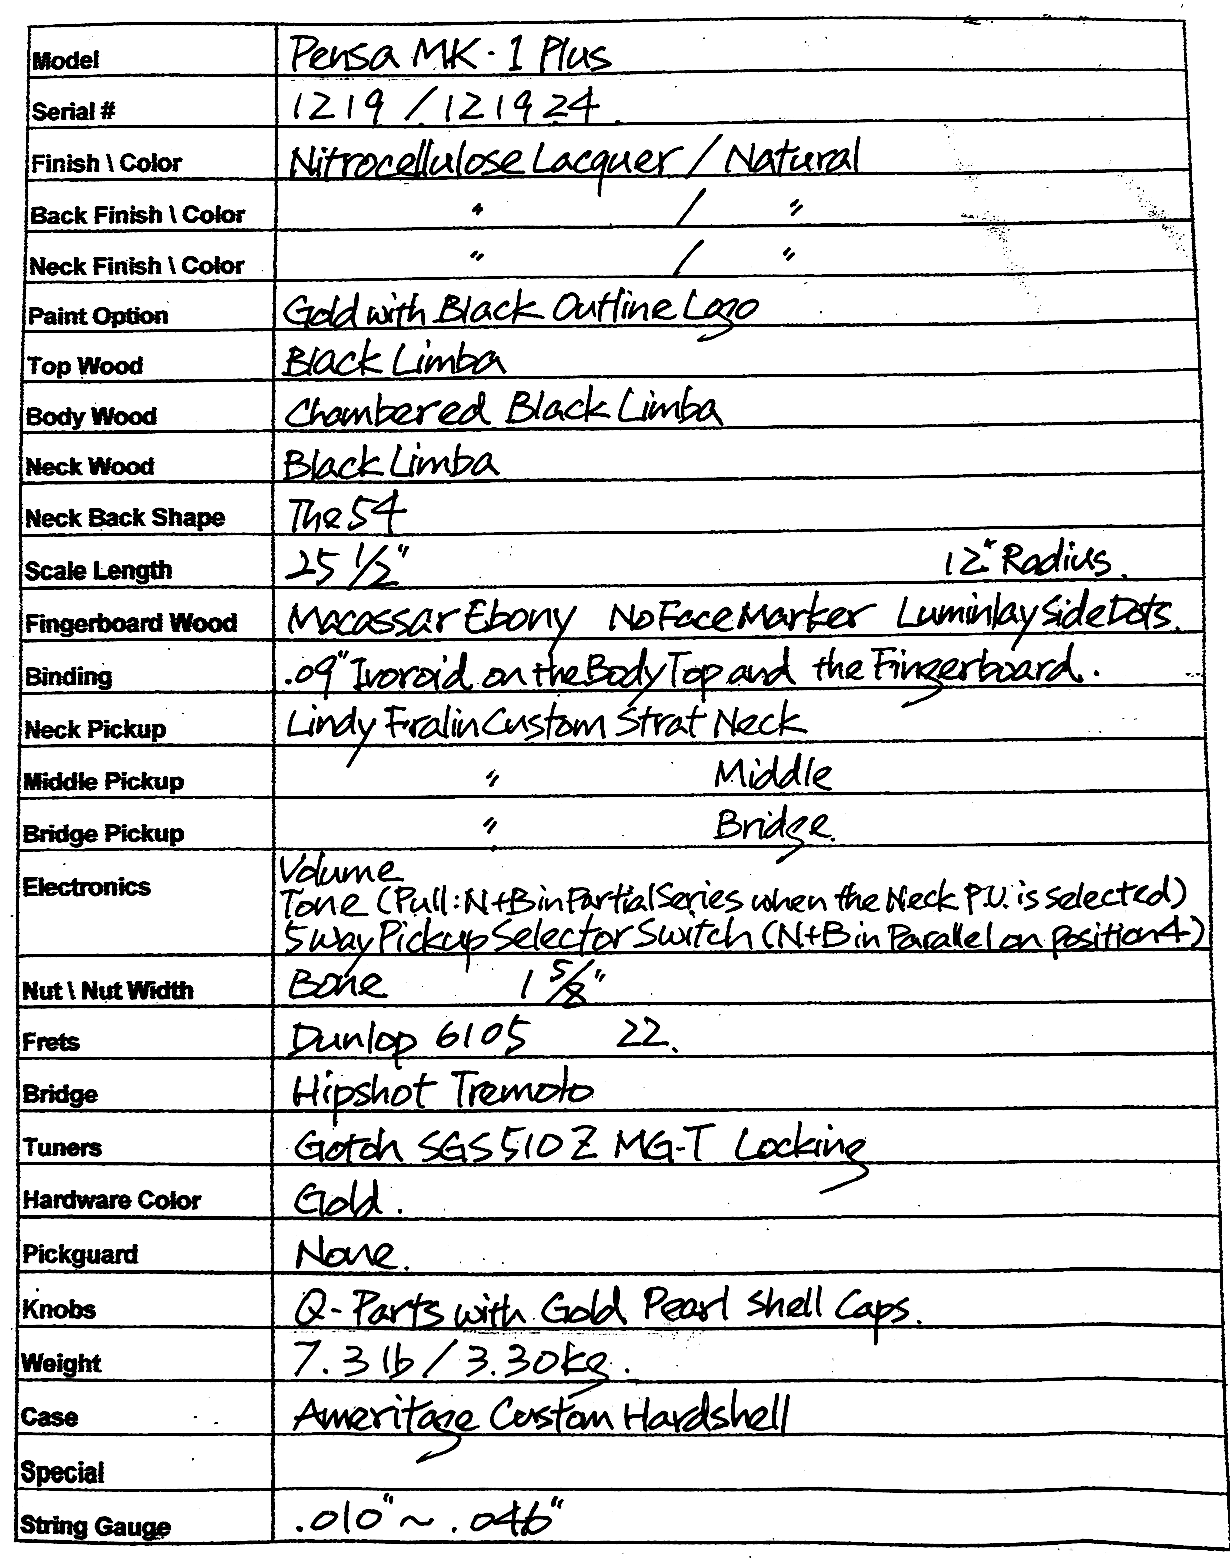 Model Pensa MK-1 Plus
Serial # 1219 / 121924.
Finish \ Color Nitrocellulose Lacquer / Natural
Back Finish \ Color " / "
Neck Finish \ Color " / "
Paint Option Gold with Black Outline Logo
Top Wood Black Limba
Body Wood Chambered Black Limba
Neck Wood Black Limba
Neck Back Shape The 54
Scale Length 25 1/2" 12" Radius.
Fingerboard Wood Macassar Ebony No Face Marker Luminlay Side Dots.
Binding .09" Ivoroid on the Body Top and the Fingerboard.
Neck Pickup Lindy Fralin Custom Strat Neck
Middle Pickup " Middle
Bridge Pickup " Bridge.
Electronics Volume
Tone (Pull: N+B in Partial Series when the Neck P.U. is selected)
5 Way Pickup Selector Switch (N+B in Parallel on position 4)
Nut \ Nut Width Bone 1 5/8"
Frets Dunlop 6105 22.
Bridge Hipshot Tremolo
Tuners Gotoh SGS510Z MG-T Locking
Hardware Color Gold.
Pickguard None.
Knobs Q-Parts with Gold Pearl Shell Caps.
Weight 7.3 lb / 3.30kg.
Case Ameritage Custom Hardshell
Special
String Gauge .010" ~ .046"